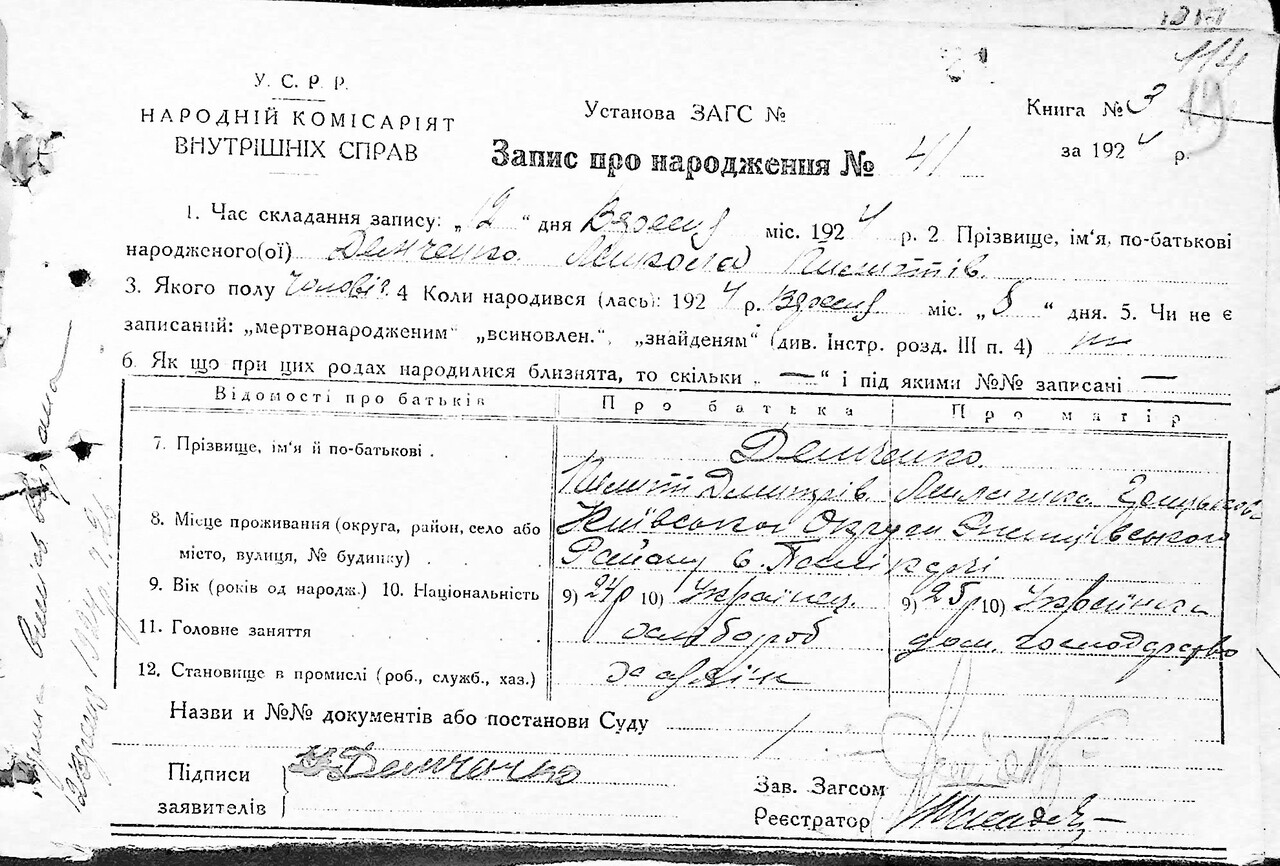 114
19
У. С. Р. Р.
НАРОДНІЙ КОМІСАРІЯТ
ВНУТРІШНІХ СПРАВ
Установа ЗАГС №
Книга № 3
за 1924 р.
Запис про народження № 41
1. Час складання запису: „12" дня Вересня міс. 1924 р. 2 Прізвище, ім'я, по-батькові
народженого(ої) Демченко Микола
3. Якого полу Чоловіч. 4 Коли народився (лась): 1924 р. Вересня міс. „8" дня. 5. Чи не є
записаний: „мертвонародженим" „всиновлен.", „знайденям" (див. Інстр. розд. III п. 4) ні
6. Як що при цих родах народилися близнята, то скільки „—" і під якими №№ записані —
Відомості про батьків Про батька Про матір
7. Прізвище, ім'я й по-батькові . Демченко
Дмитрів
8. Місце проживання (округа, район, село або Київської Округи
місто, вулиця, № будинку) . Району с.
9. Вік (років од народж.) 10. Національність 9) 24р 10) Українец. 9) 25р 10) Українка
11. Головне заняття хлібороб дом. господарство
12. Становище в промислі (роб., служб., хаз.) хазяін
Назви и №№ документів або постанови Суду
Підписи Демченко
заявителів
Зав. Загсом
Реєстратор